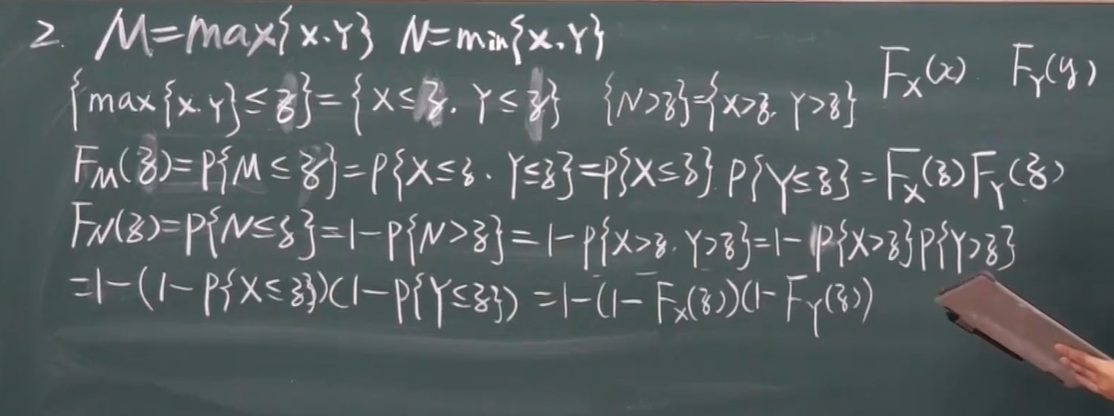 2. M=max{X.Y} N=min{X.Y}
F_X(x) F_Y(y)
{max{X.Y}≤z}={X≤z. Y≤z} {N>z}={X>z. Y>z}
F_M(z)=P{M≤z}=P{X≤z. Y≤z}=P{X≤z}.P{Y≤z}=F_X(z)F_Y(z)
F_N(z)=P{N≤z}=1-P{N>z}=1-P{X>z. Y>z}=1-P{X>z}P{Y>z}
=1-(1-P{X≤z})(1-P{Y≤z}) =1-(1-F_X(z))(1-F_Y(z))